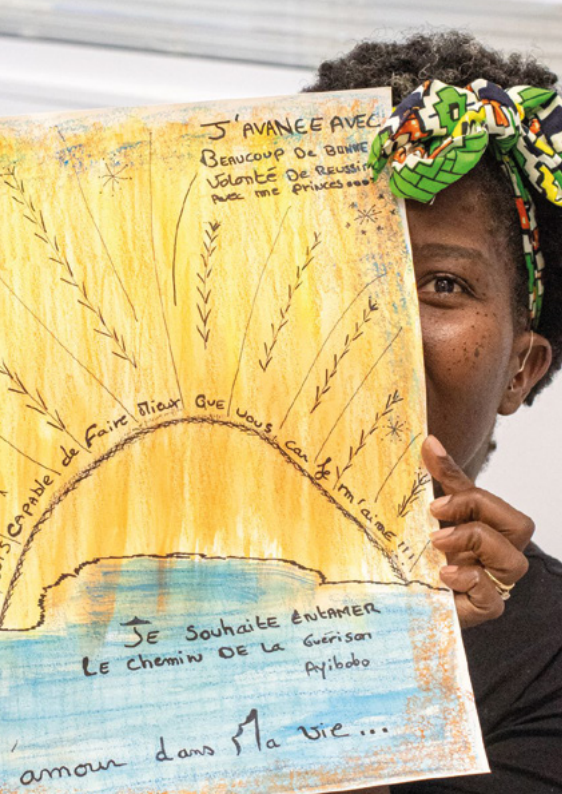 J'AVANCE AVEC
BEAUCOUP DE BONNE
Volonté De REUSSIR
Avec me princes...
CAPABLE de Faire Mieux QUE vous car Je m'aime !!!
JE Souhaite ENTAMER
LE chemin DE La Guérison
Ayibobo
amour dans Ma vie...